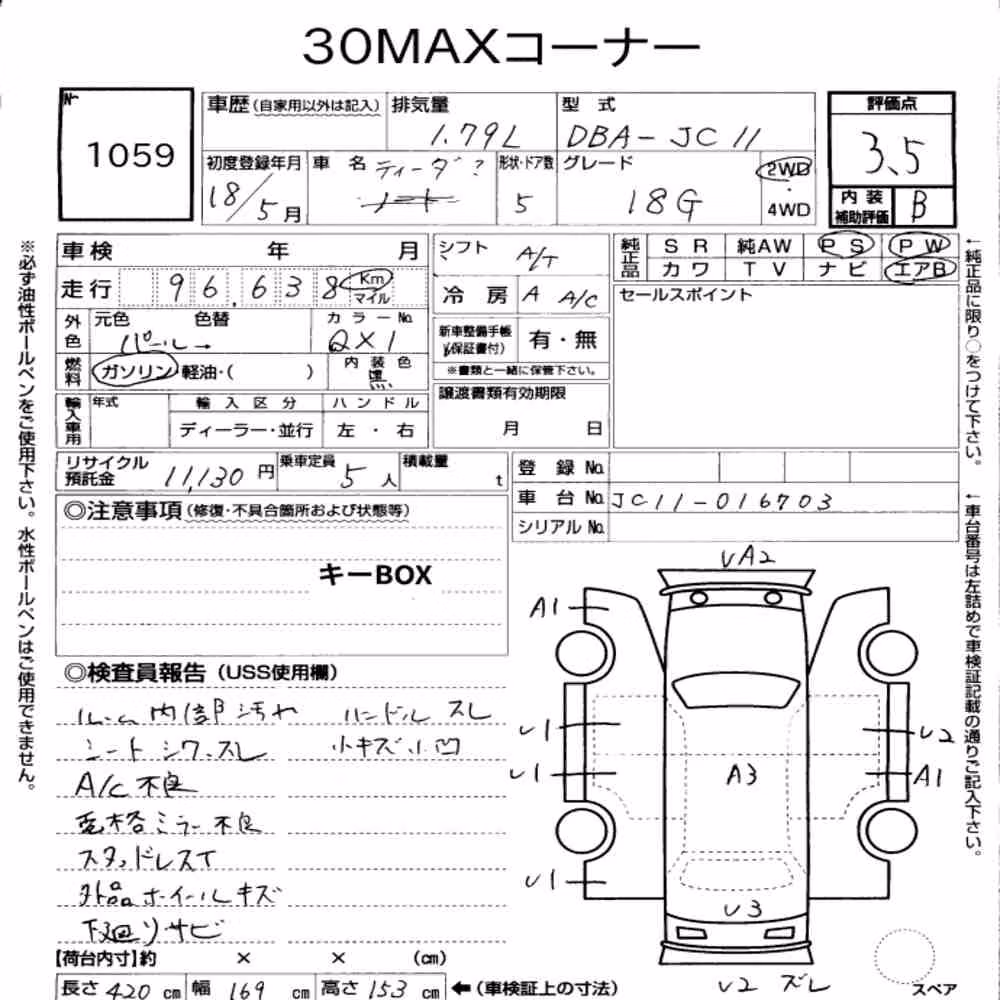 30MAXコーナー
No.
1059
車歴(自家用以外は記入)
排気量
1.79L
型式
DBA-JC11
評価点
3.5
初度登録年月
18/5月
車名
ティーダ?
形状・ドア数
5
グレード
18G
2WD
・
4WD
内装
補助評価
B
車検 年 月
シフト
A/T
純正品
SR 純AW PS PW
カワ TV ナビ エアB
走行 96,638 Km
マイル
冷房 A A/C
セールスポイント
外色
元色 色替
パール→
カラーNo.
QX1
新車整備手帳
(保証書付)
有・無
※書類と一緒に保管下さい。
燃料
ガソリン・軽油・( )
内装色
黒
譲渡書類有効期限
月 日
輸入車用
年式
輸入区分
ディーラー・並行
ハンドル
左・右
リサイクル
預託金
11,130円
乗車定員
5人
積載量
t
登録No.
車台No. JC11-016703
シリアルNo.
◎注意事項(修復・不具合箇所および状態等)
キーBOX
◎検査員報告(USS使用欄)
ルーム内部汚れ ハンドルスレ
シートシワ、スレ 小キズ小凹
A/C不良
電格ミラー不良
スタッドレスT
外品ホイールキズ
下廻りサビ
【荷台内寸】約 × × (cm)
長さ420cm 幅169cm 高さ153cm
←(車検証上の寸法)
UA2
A1
U1
U1
U1
A3
U2
A1
U3
U2 ズレ
スペア
※必ず油性ボールペンをご使用下さい。水性ボールペンはご使用できません。
←純正品に限り○をつけて下さい。
←車台番号は左詰めで車検証記載の通りご記入下さい。